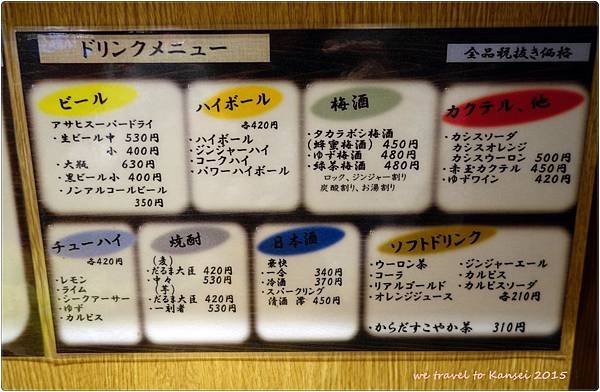 ドリンクメニュー
全品税抜き価格
ビール
アサヒスーパードライ
・生ビール中 530円
小 400円
・大瓶 630円
・黒ビール小 400円
・ノンアルコールビール
350円
ハイボール
各420円
・ハイボール
・ジンジャーハイ
・コークハイ
・パワーハイボール
梅酒
・タカラボシ梅酒
(蜂蜜梅酒) 450円
・ゆず梅酒 480円
・緑茶梅酒 480円
ロック、ジンジャー割り
炭酸割り、お湯割り
カクテル、他
・カシスソーダ
カシスオレンジ
カシスウーロン 500円
・赤玉カクテル 450円
・ゆずワイン 420円
チューハイ
各420円
・レモン
・ライム
・シークアーサー
・ゆず
・カルピス
焼酎
(麦)
・だるま大臣 420円
・中々 530円
(芋)
・だるま大臣 420円
・一刻者 530円
日本酒
豪快
・一合 340円
・冷酒 370円
・スパークリング
清酒 澪 450円
ソフトドリンク
・ウーロン茶
・コーラ
・リアルゴールド
・オレンジジュース
・ジンジャーエール
・カルピス
・カルピスソーダ
各210円
・からだすこやか茶 310円
we travel to Kansei 2015